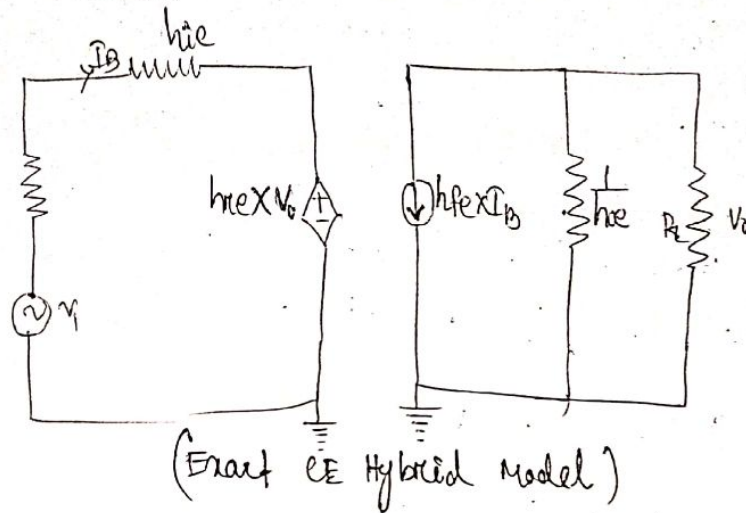 hie
IB
hre×Vo
hfe×IB
1
hoe
RL
Vo
V1
(Exact CE Hybrid Model)